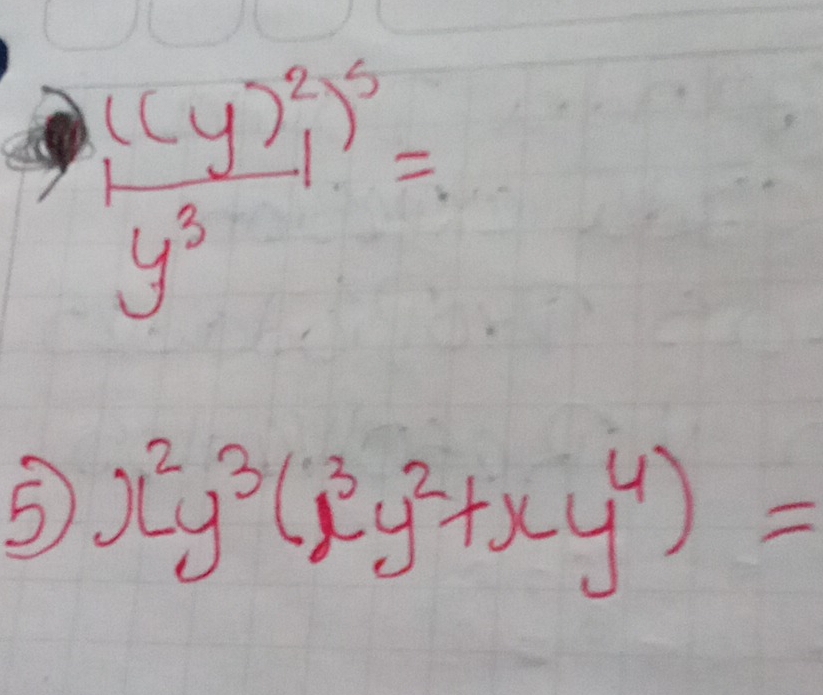 ((y)²)⁵
y³ =
5) x²y³(x³y²+xy⁴) =